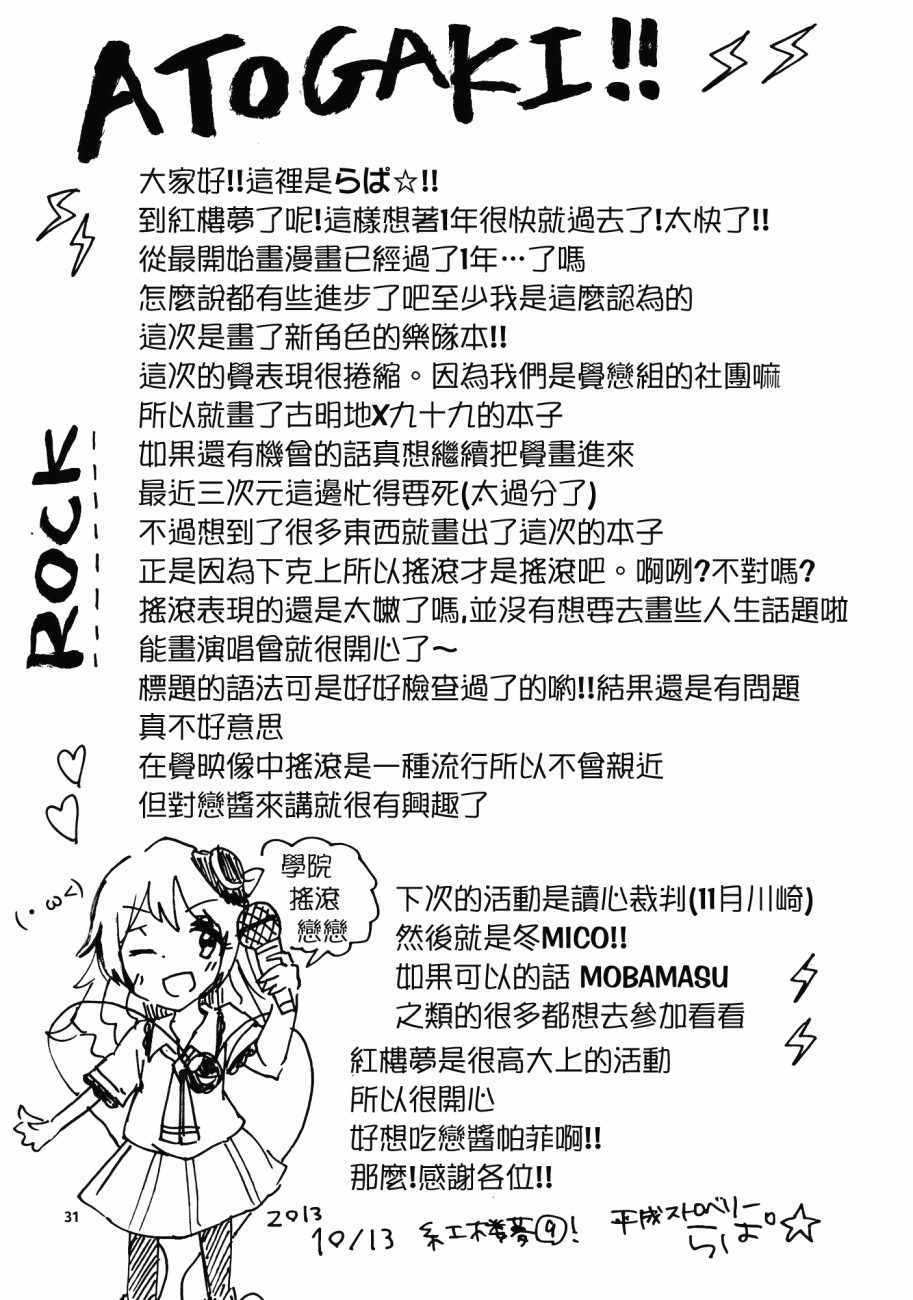 ATOGAKI!!
大家好!!這裡是らぱ☆!!
到紅樓夢了呢!這樣想著1年很快就過去了!太快了!!
從最開始畫漫畫已經過了1年…了嗎
怎麼說都有些進步了吧至少我是這麼認為的
這次是畫了新角色的樂隊本!!
這次的覺表現很捲縮。因為我們是覺戀組的社團嘛
所以就畫了古明地X九十九的本子
如果還有機會的話真想繼續把覺畫進來
最近三次元這邊忙得要死(太過分了)
不過想到了很多東西就畫出了這次的本子
正是因為下克上所以搖滾才是搖滾吧。啊咧?不對嗎?
搖滾表現的還是太嫩了嗎,並沒有想要去畫些人生話題啦
能畫演唱會就很開心了～
標題的語法可是好好檢查過了的喲!!結果還是有問題
真不好意思
在覺映像中搖滾是一種流行所以不會親近
但對戀醬來講就很有興趣了
ROCK
(・ω<)
學院
搖滾
戀戀
下次的活動是讀心裁判(11月川崎)
然後就是冬MICO!!
如果可以的話 MOBAMASU
之類的很多都想去參加看看
紅樓夢是很高大上的活動
所以很開心
好想吃戀醬帕菲啊!!
那麼!感謝各位!!
31
2013
10/13 紅楼夢⑨!
平成ストロベリー
らぱ。☆